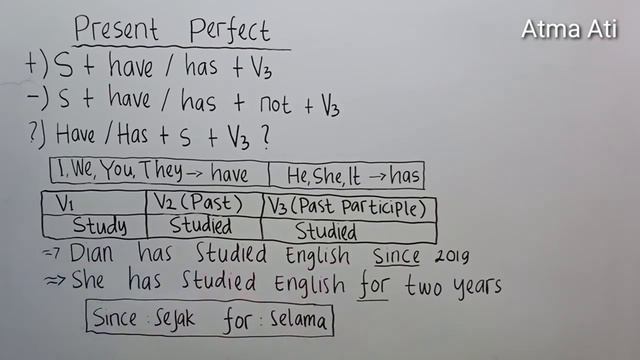 Atma Ati
Present Perfect
+) S + have / has + V3
-) S + have / has + not + V3
?) Have / Has + S + V3 ?
I, We, You, They → have He, She, It → has
V1 V2 (Past) V3 (Past Participle)
Study Studied Studied
⇒ Dian has Studied English since 2019
⇒ She has Studied English for two years
Since : Sejak for : Selama